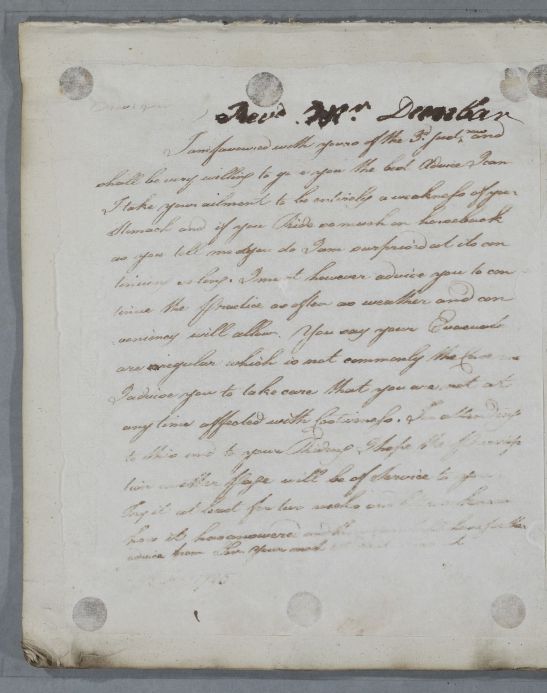 Revd. Mr. Dunbar
I am favoured with yours of the 3d. Inst. and
shall be very willing to give you the best Advice I can
I take your ailment to be entirely a weakness of your
Stomach and if you Ride so much on horseback
as you tell me you do I am surprised at its con
tinuing so long. I must however advice you to con
tinue the practice as often as weather and con
veniency will allow. You say your Evacuati
are regular which is not commonly the Case
I advice you to take care that you are not at
any time affected with Costiveness. In attending
to this and to your Riding I hope the
tion on other page will be of Service to you
Try it at least for two weeks and
how it has answered and
advice from Sir Your most